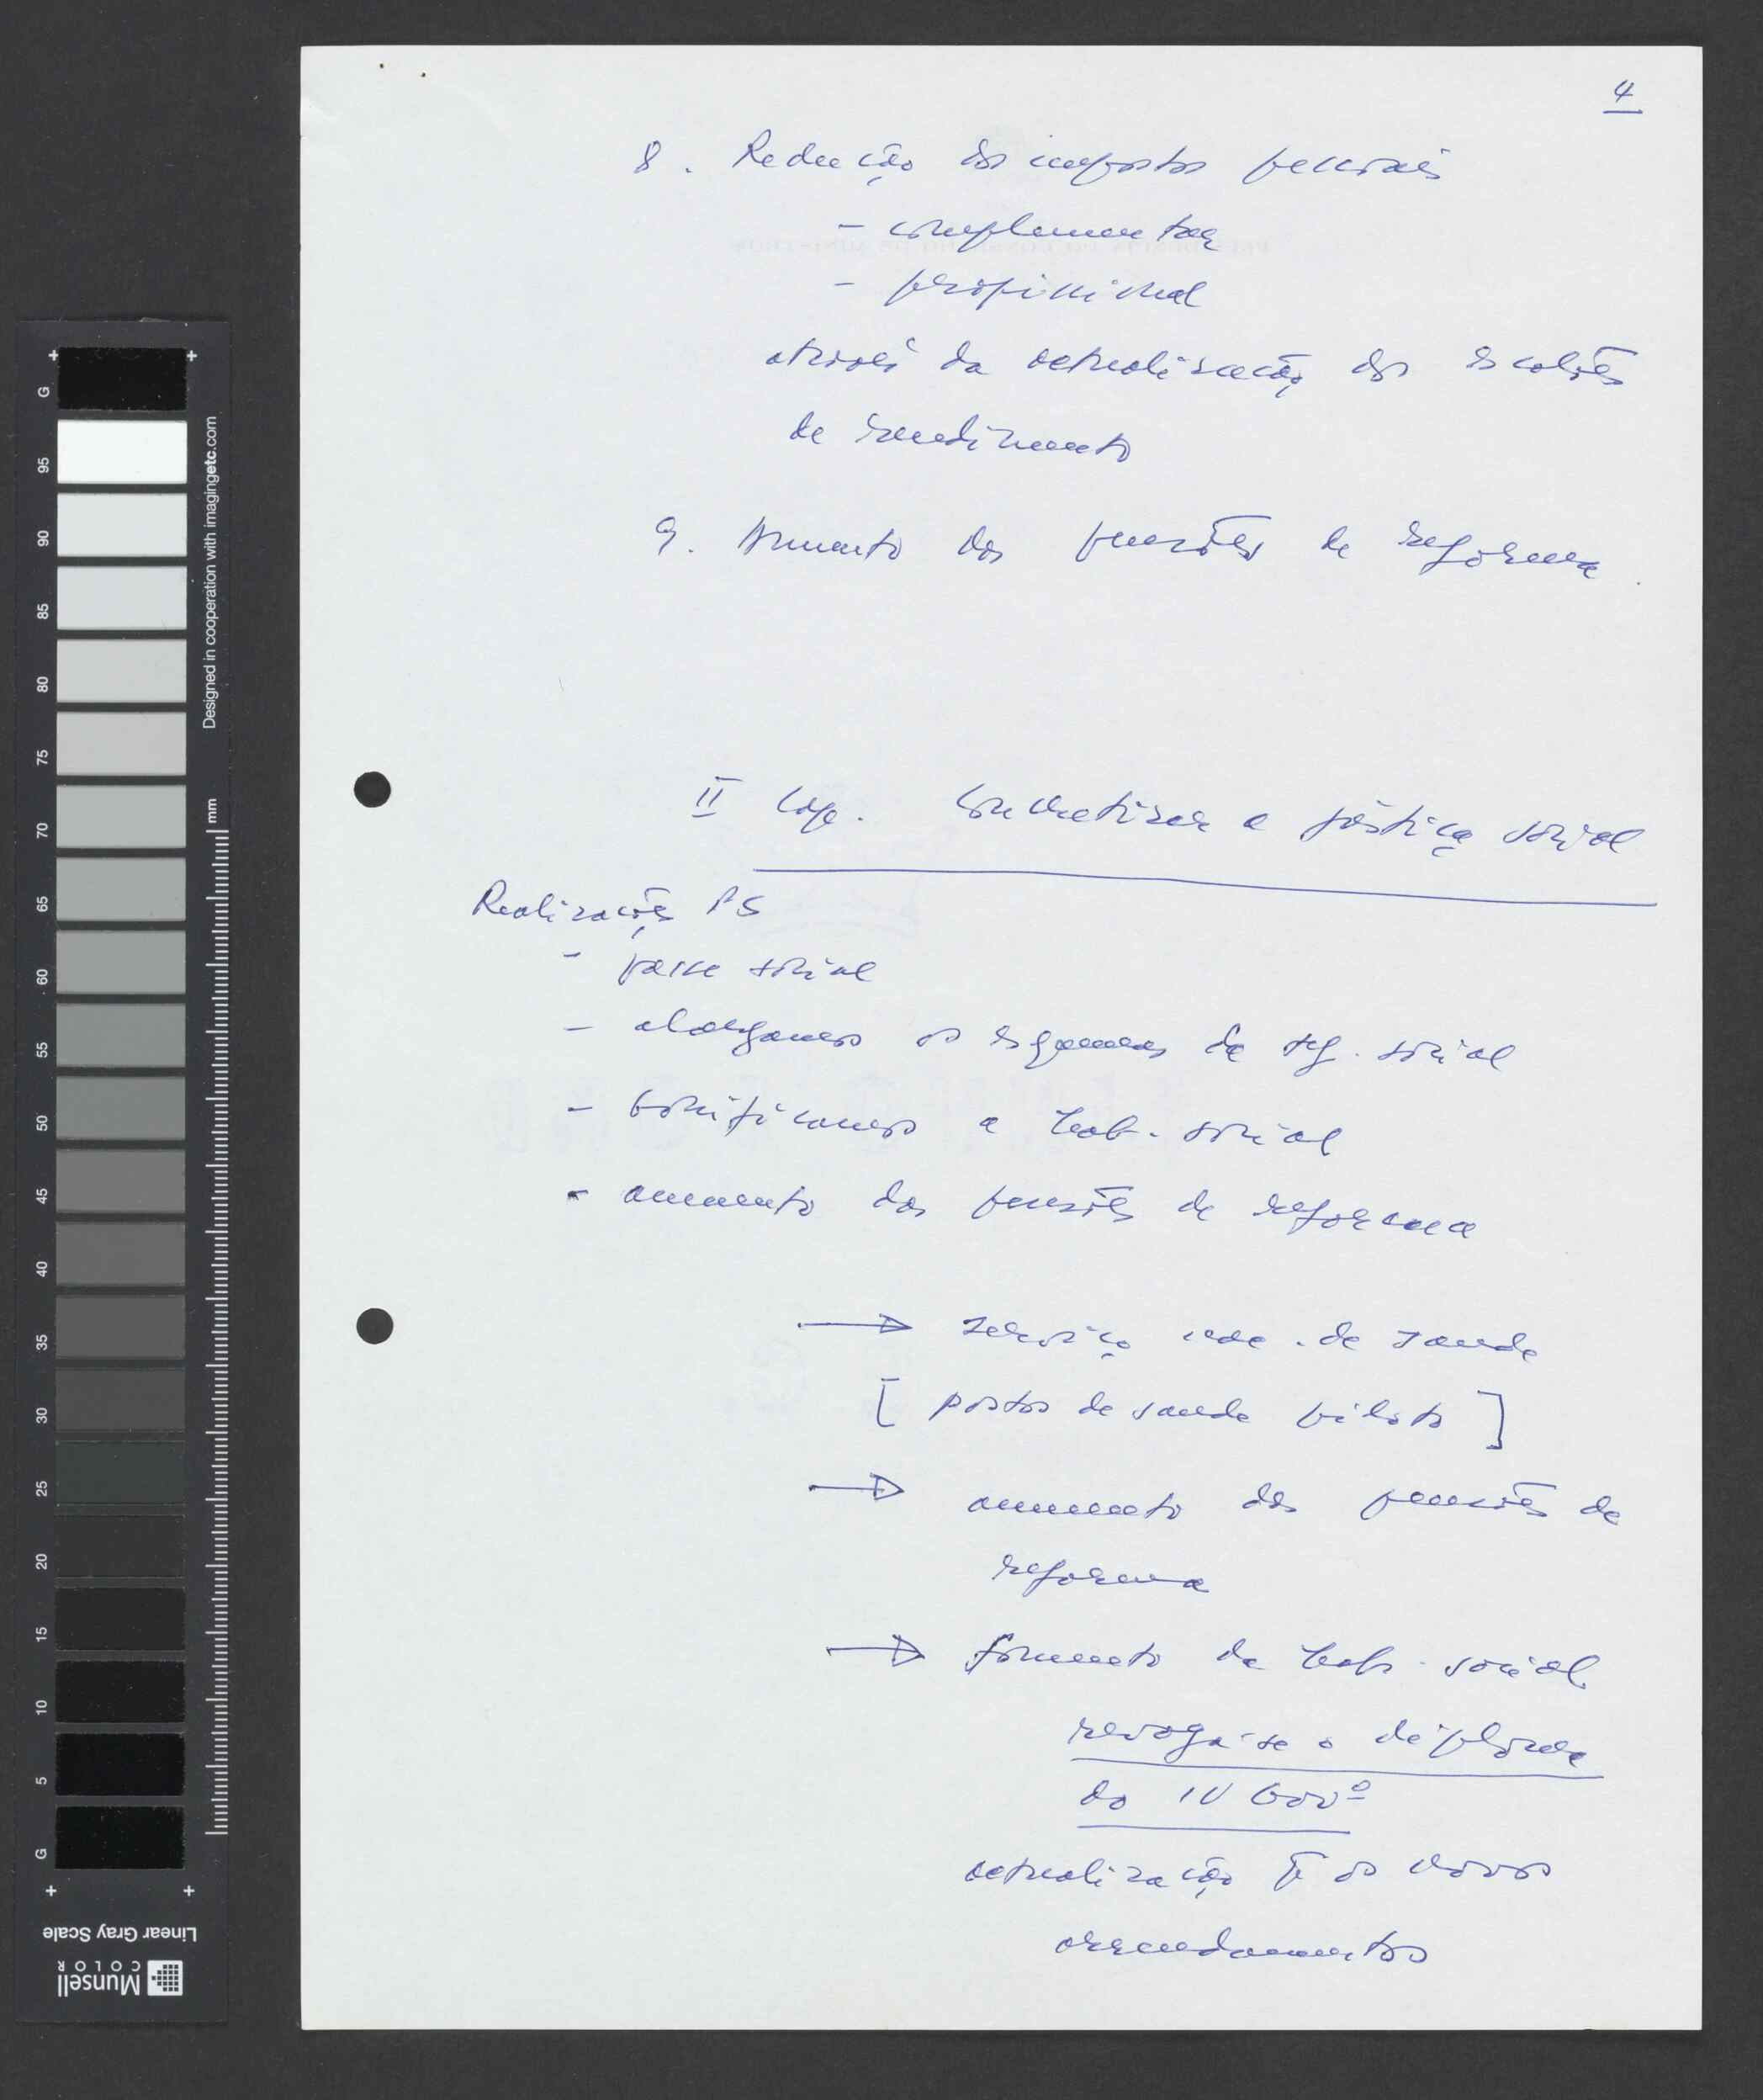 4
8. Redução dos impostos pessoais
- complementar
- profissional
através da actualização dos escalões
de rendimento
9. Aumento das pensões de reforma.
II Cap. Concretizar a justiça social
Realizações PS
- passe social
- alargamos os esquemas da seg. social
- bonificamos a hab. social
- aumento das pensões de reforma
→ serviço nac. de saude
[ postos de saude piloto ]
→ aumento das pensões de
reforma
→ fomento da hab. social
revoga-se o diploma
do IV Govº
actualização p/ os novos
arrendamentos
G
95
90
85
80
75
70
65
60
55
50
45
40
35
30
25
20
15
10
5
G
Designed in cooperation with imagingetc.com
mm
Linear Gray Scale
Munsell
COLOR